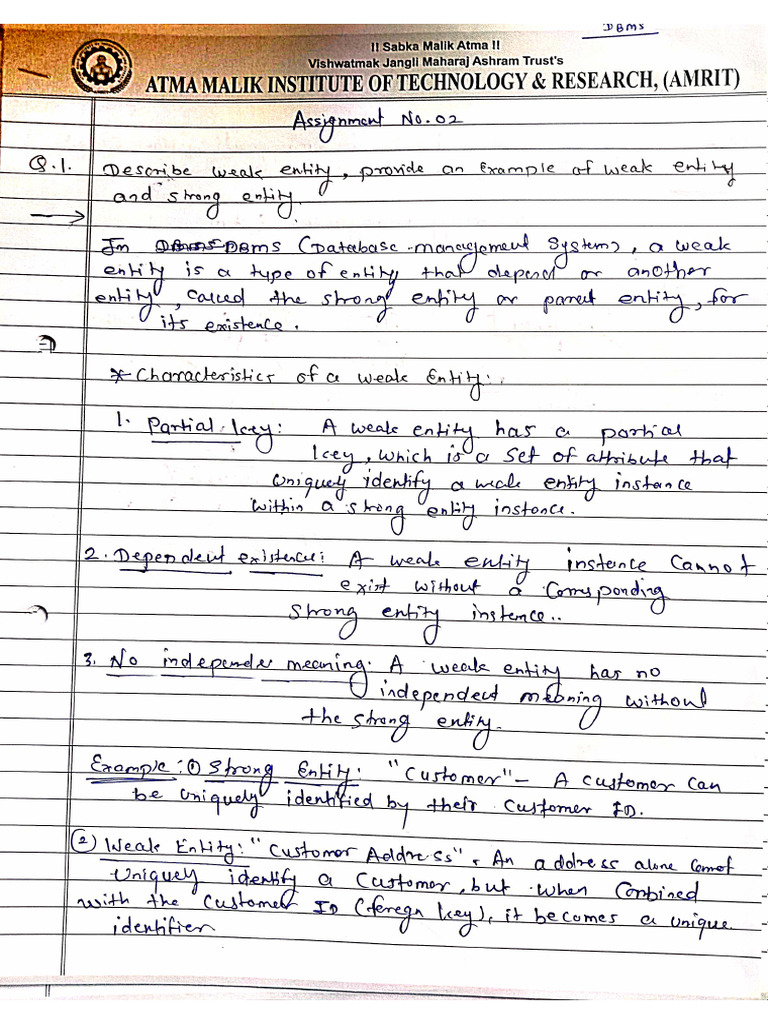 DBMS
!! Sabka Malik Atma !!
Vishwatmak Jangli Maharaj Ashram Trust's
ATMA MALIK INSTITUTE OF TECHNOLOGY & RESEARCH, (AMRIT)
Assignment No. 02
Q.1. Describe weak entity, provide an Example of weak entity
and strong entity.
In DBMS DBMS (Database management System), a weak
entity is a type of entity that depend or another
entity, called the strong entity or parent entity, for
its existence.
* Characteristics of a weak Entity:
1. Partial key: A weak entity has a partial
key, which is a set of attribute that
uniquely identify a weak entity instance
within a strong entity instance.
2. Dependent existence: A weak entity instance cannot
exist without a Corrsponding
strong entity instence..
3. No independe meaning. A weak entity has no
independent meaning without
the strong entity.
Example: ① Strong Entity: "Customer" - A customer can
be uniquely identified by their Customer ID.
② Weak Entity: "Customer Address". An address alone cannot
uniquely identify a Customer, but when Combined
with the Customer ID (foregn key), it becomes a unique
identifier